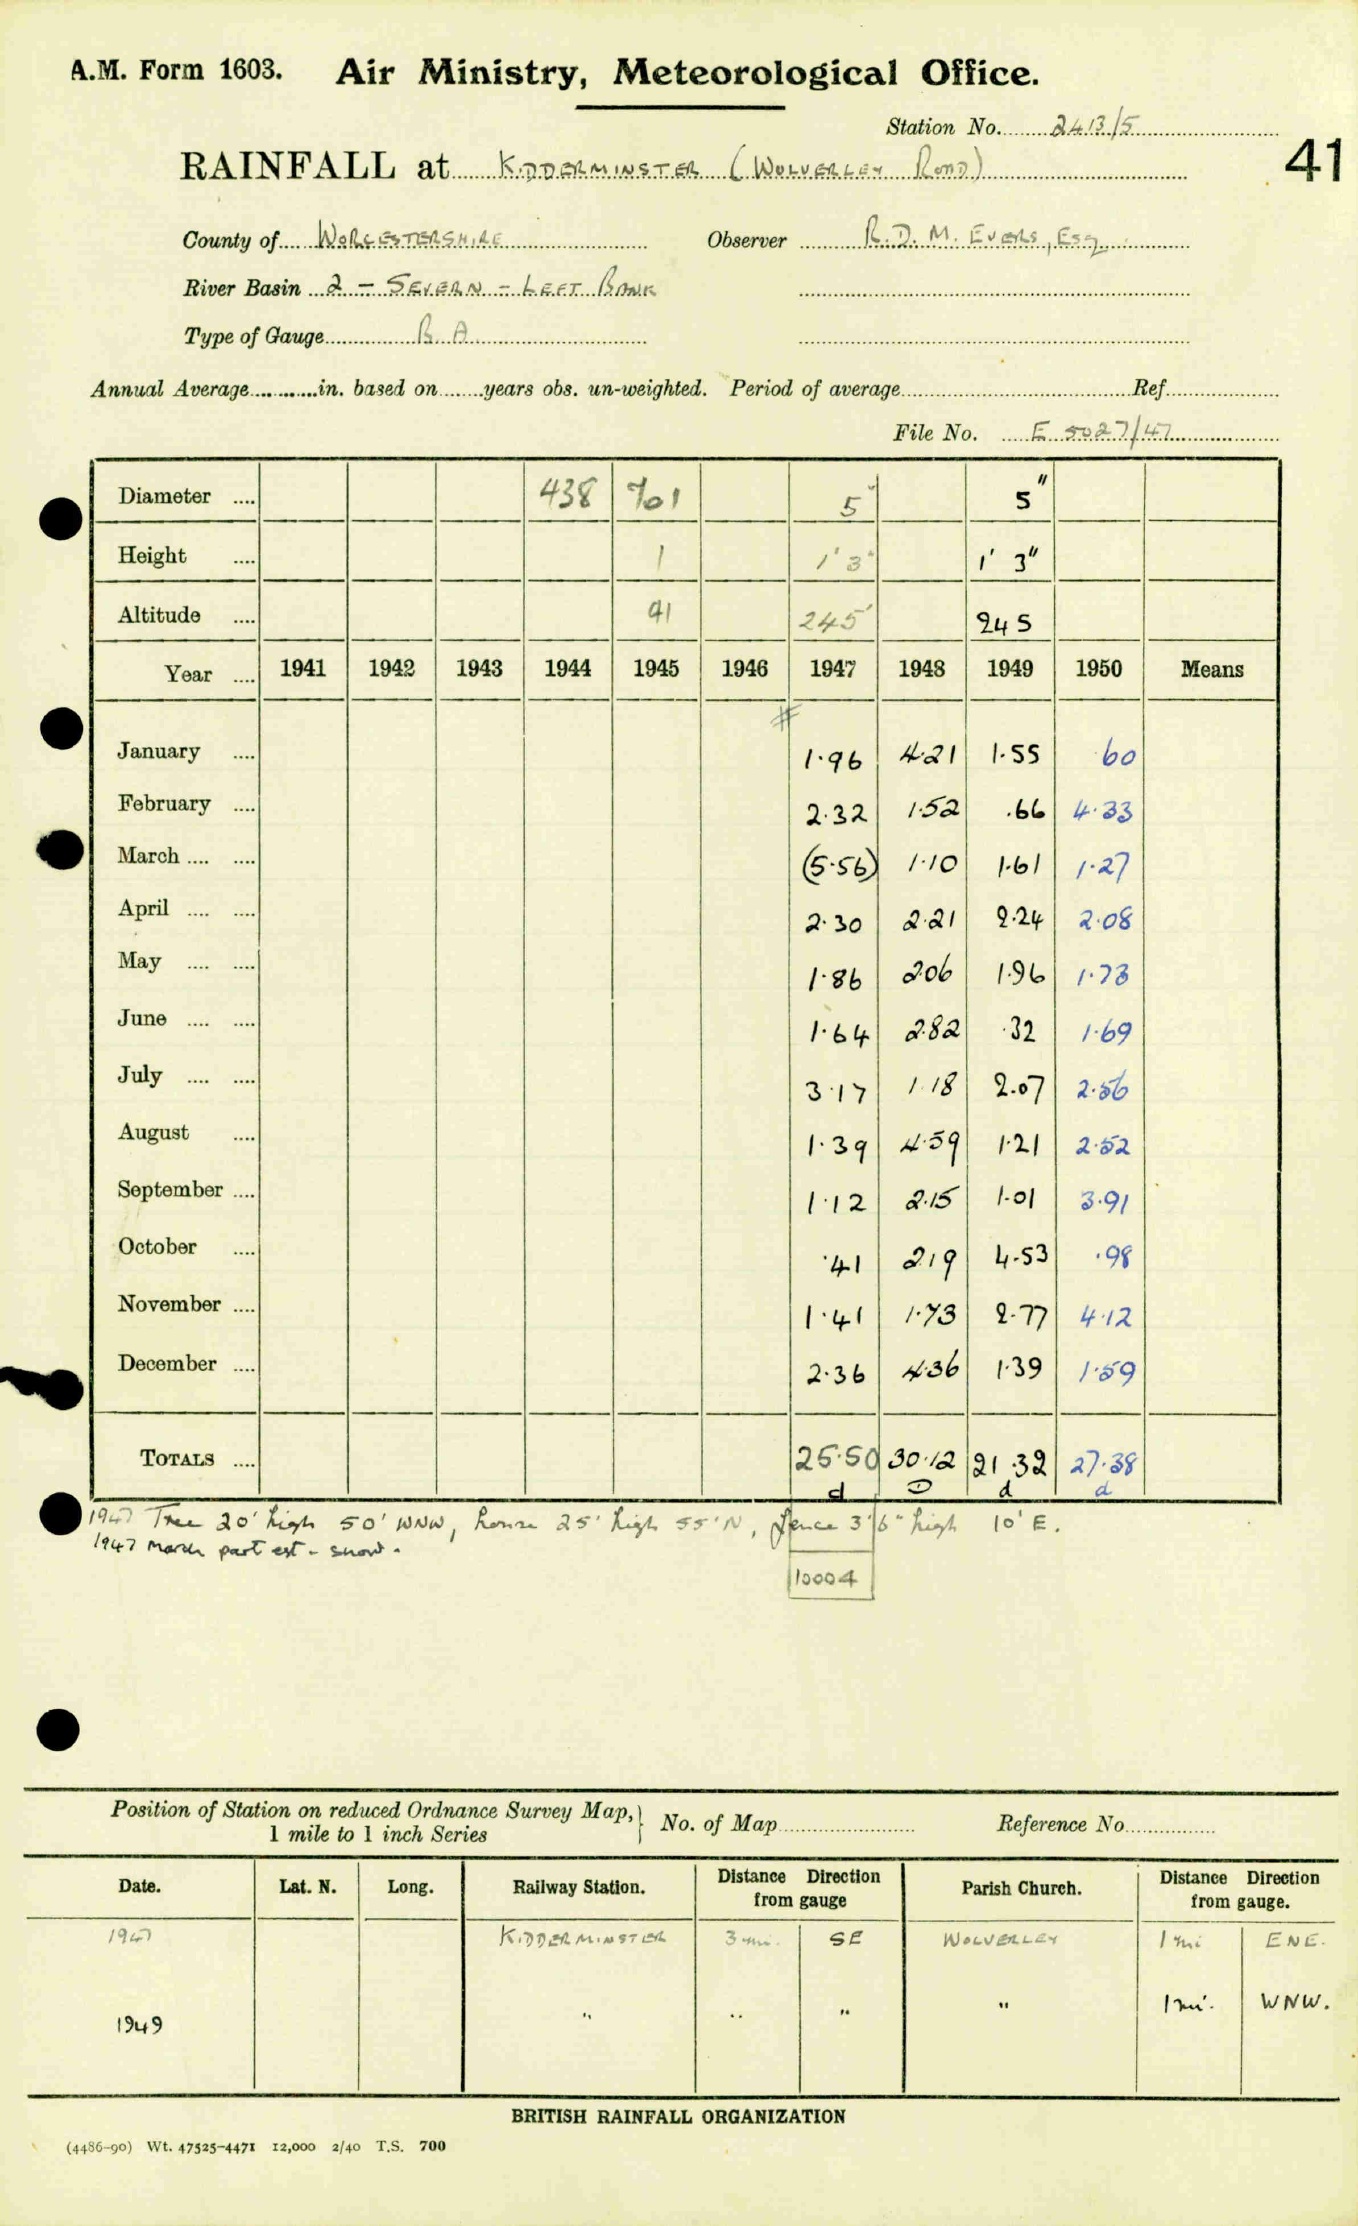 A.M. Form 1603. Air Ministry, Meteorological Office.
Station No. 2413/5
RAINFALL at KIDDERMINSTER (WOLVERLEY ROAD) 41
County of WORCESTERSHIRE Observer R.D.M. EVERS, ESQ.
River Basin 2 - SEVERN - LEFT BANK
Type of Gauge
Annual Average in. based on years obs. un-weighted. Period of average Ref
File No. E 5027/47
Diameter 438 701 5" 5"
Height 1 1' 3" 1' 3"
Altitude 91 245' 245
Year 1941 1942 1943 1944 1945 1946 1947 1948 1949 1950 Means
January 1.96 4.21 1.55 .60
February 2.32 1.52 .66 4.33
March (5.56) 1.10 1.61 1.27
April 2.30 2.21 2.24 2.08
May 1.86 2.06 1.96 1.73
June 1.64 2.82 .32 1.69
July 3.17 1.18 2.07 2.56
August 1.39 4.59 1.21 2.52
September 1.12 2.15 1.01 3.91
October .41 2.19 4.53 .98
November 1.41 1.73 2.77 4.12
December 2.36 4.36 1.39 1.59
TOTALS 25.50 30.12 21.32 27.38
d d d
1947 Tree 20' high 50' WNW, house 25' high 55' N, fence 3' 6" high 10' E.
1947 March part est - snow.
10004
Position of Station on reduced Ordnance Survey Map, 1 mile to 1 inch Series No. of Map Reference No.
Date. Lat. N. Long. Railway Station. Distance Direction from gauge Parish Church. Distance Direction from gauge.
1947 KIDDERMINSTER 3 mi. SE WOLVERLEY 1 mi ENE.
1949 " " " " 1 mi. WNW.
BRITISH RAINFALL ORGANIZATION
(4486-90) Wt. 47525-4471 12,000 2/40 T.S. 700